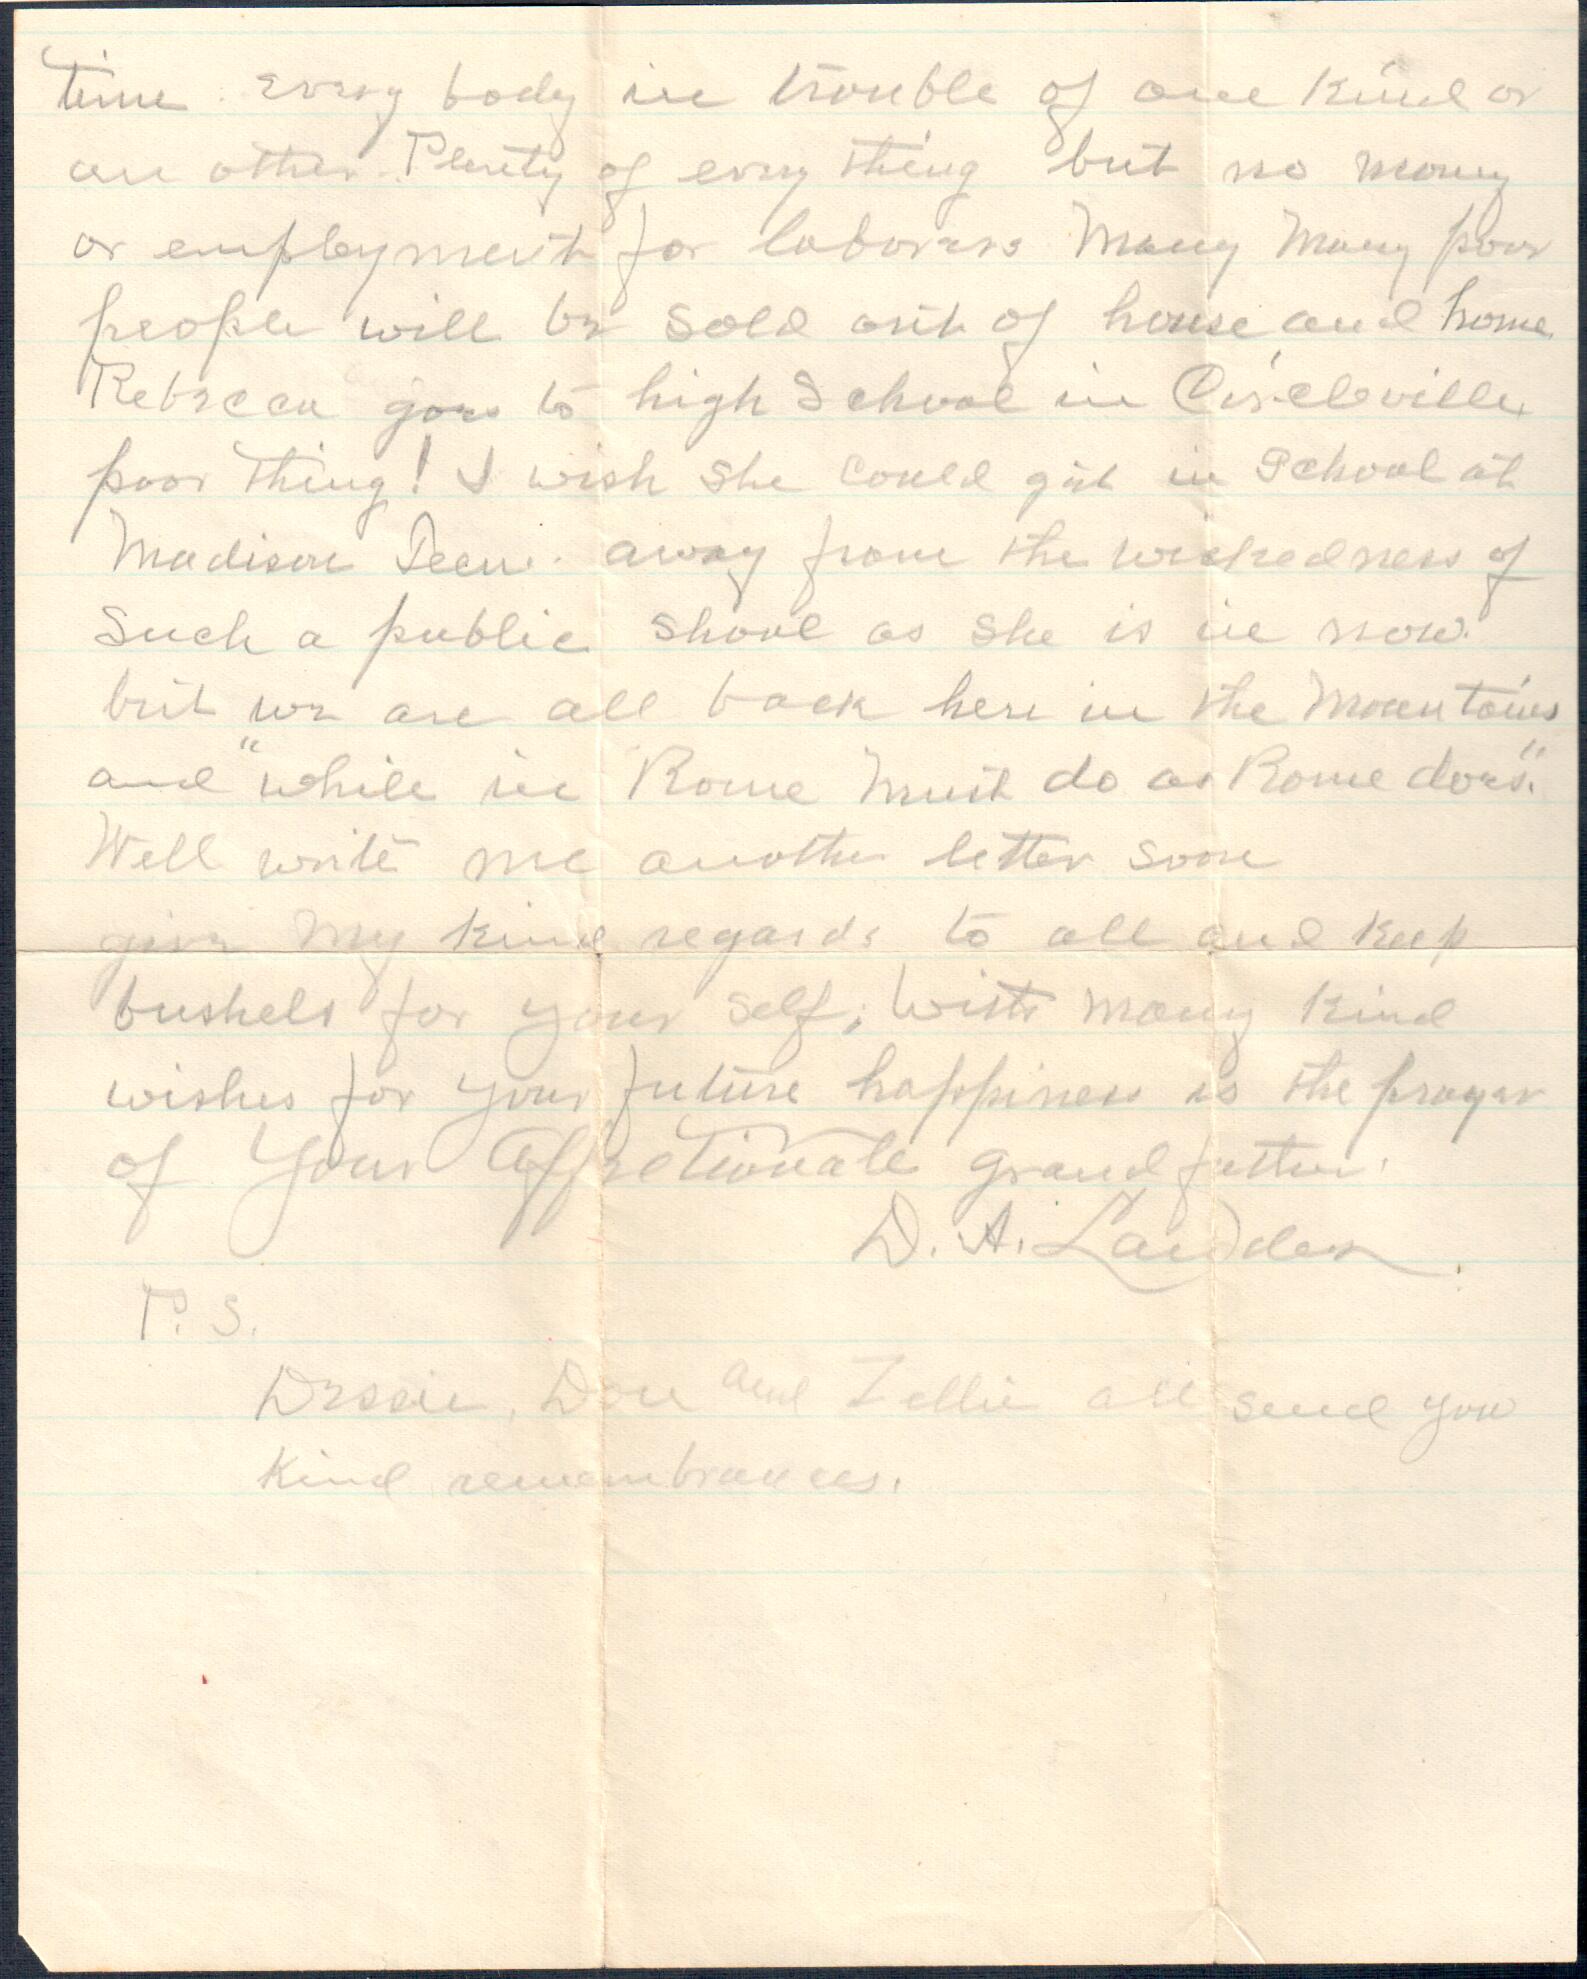 time. Every body in trouble of one kind or
an other. Plenty of every thing but no money
or employment for laborers Many Many poor
people will be sold out of house and home
Rebecca goes to high School in Circleville,
poor thing! I wish she could get in School at
Madison Tenn. away from the wickedness of
Such a public shool as she is in now.
but we are all back here in the Mountains
and "while in Rome Must do as Rome does".
Well write me another letter soon
give My kind regards to all and keep
bushels for your self; With many kind
wishes for your future happiness is the prayer
of Your Affectionate grandfather.
D. A.
P. S.
Dessie, Don and Zellie all send you
kind remembrances.